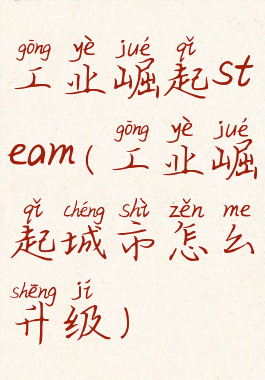 gōng yè jué qǐ
工业崛起st
gōng yè jué
eam(工业崛
qǐ chéng shì zěn me
起城市怎么
shēng jí
升级)